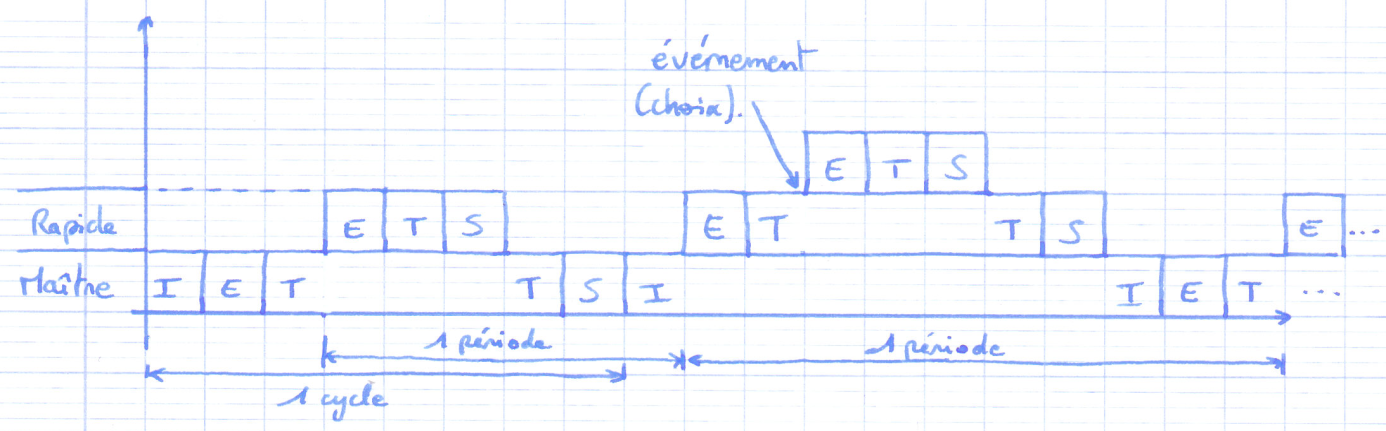 événement
(choix).
E T S
Rapide E T S E T T S E ...
Maître I E T T S I I E T ...
1 période 1 période
1 cycle